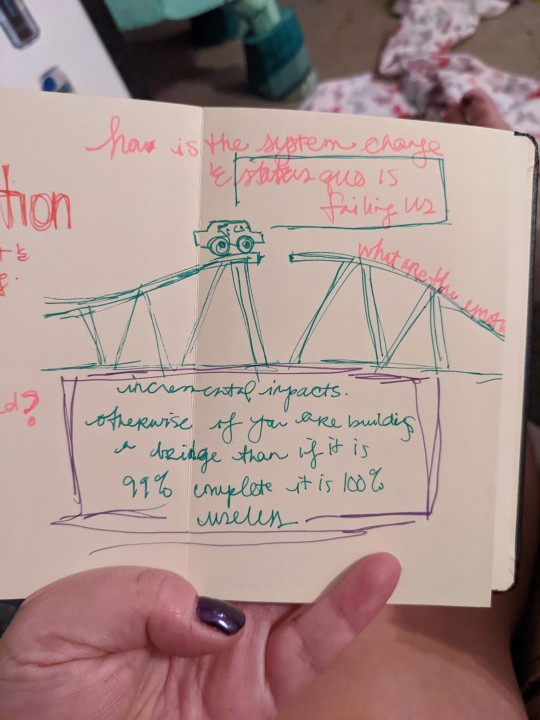 how is the system change
& status quo is
failing us
tion
what are the emo
d?
incremental inpacts.
otherwise if you are buildig
a bridge than if it is
99% complete it is 100%
useless